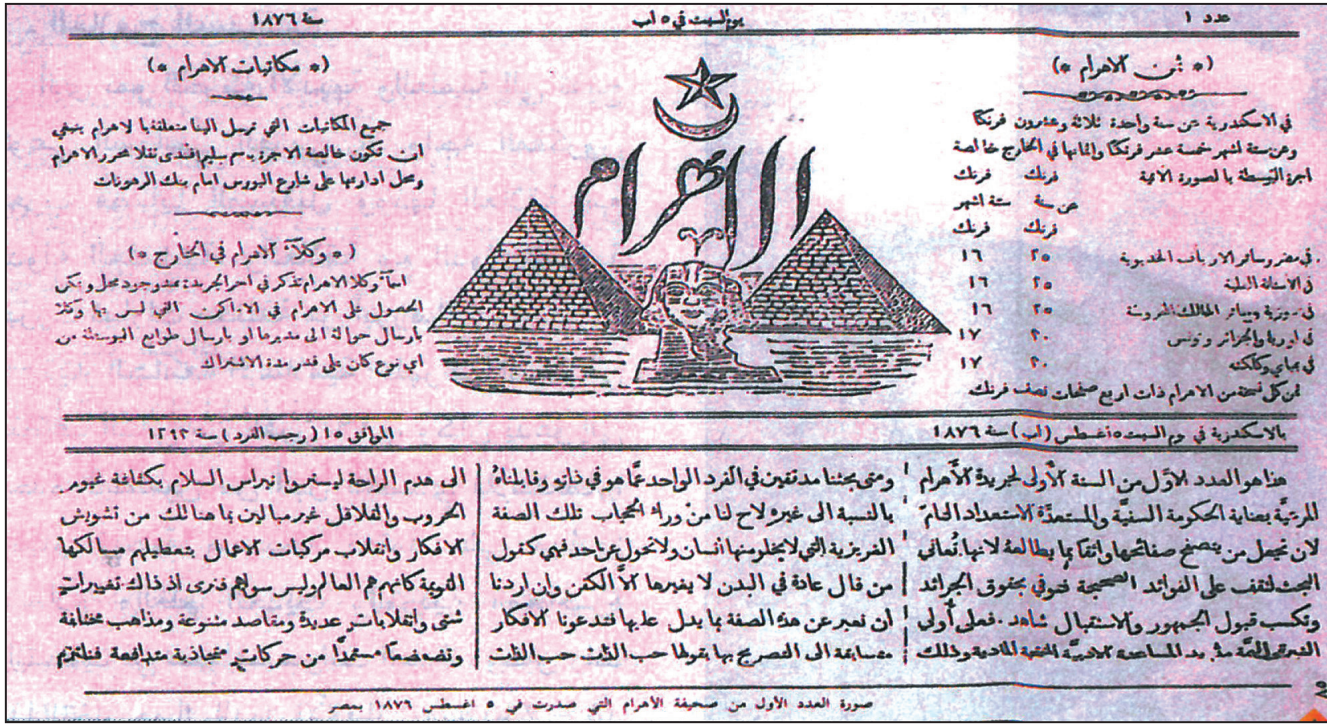 عدد ١
يوم السبت في ٥ اب
سنة ١٨٧٦
(* ثمن الاهرام *)
في الاسكندرية عن سنة واحدة ثلاثة وعشرون فرنكا
وعن ستة اشهر خمسة عشر فرنكا واثمانها في الخارج خالصة
اجرة البوسطة بالصورة الآتية
فرنك فرنك
عن سنة ستة اشهر
فرنك فرنك
في مصر وسائر الارياف الخديوية ٢٥ ١٦
في الاستانة العلية ٢٥ ١٦
في سورية وسائر الممالك المحروسة ٢٥ ١٦
في اوربا والجزائر وتونس ٣٠ ١٧
في بمباي وكلكته ٣٠ ١٧
ثمن كل نسخة من الاهرام ذات اربع صفحات نصف فرنك
الاهرام
(* مكاتبات الاهرام *)
جميع المكاتبات التي ترسل الينا متعلقة بالاهرام ينبغي
ان تكون خالصة الاجرة باسم سليم افندي تقلا محرر الاهرام
ومحل ادارتها على شارع البورس امام بنك الرهونات
(* وكلآء الاهرام في الخارج *)
اسمآء وكلا الاهرام تذكر في اخر الجريدة عند وجود محل ويمكن
الحصول على الاهرام في الاماكن التي ليس بها وكلا
بارسال حوالة الى مديرها او بارسال طوابع البوسطة من
اي نوع كان على قدر مدة الاشتراك
بالاسكندرية في يوم السبت ٥ اغسطس (اب) سنة ١٨٧٦
الموافق ١٥ (رجب الفرد) سنة ١٢٩٣
هذا هو العدد الاوّل من السنة الأولى لجريدة الأهرام
المرعيَّة بعناية الحكومة السنيَّة والمستعدَّة الاستعداد التامّ
لان تجعل من يتصفح صفائحها واثقا بما يطالعه لانها تُعاني
البحث لتقف على الفوائد الصحيحة فتوفي بحقوق الجرائد
وتكسب قبول الجمهور والاستقبال شاهد. فعلى أولي
المساعدة الادبيَّة المادية وذلك
ومتى بحثنا مدققين في الفرد الواحد عمَّا هو في ذاته وقابلناهُ
بالنسبة الى غيره لاح لنا من وراء الحجاب تلك الصفة
الغريزية التي لا يخلو منها انسان ولا تحول عن احد فهي كقول
من قال عادة في البدن لا يغيرها الاَّ الكفن وان اردنا
أن نعبر عن هذه الصفة بما يدل عليها فتدعونا الافكار
متسابقة الى التصريح بها بقولها حب الذات حب الذات
الى هدم الراحة ليستروا نبراس السلام بكثافة غيوم
الحروب والقلاقل غير مبالين بما هنالك من تشويش
الافكار وانقلاب مركبات الاعمال بتعطيلهم مسالكها
القويمة كانهم هم العالم وليس سواهم فنرى اذ ذاك تغييراتٍ
شتى وانقلاباتٍ عديدة ومقاصد متنوعة ومذاهب مختلفة
وتضعضعاً مستمداً من حركاتٍ متجاذبة متدافعة
صورة العدد الأول من صحيفة الأهرام التي صدرت في ٥ اغسطس ١٨٧٦ بمصر